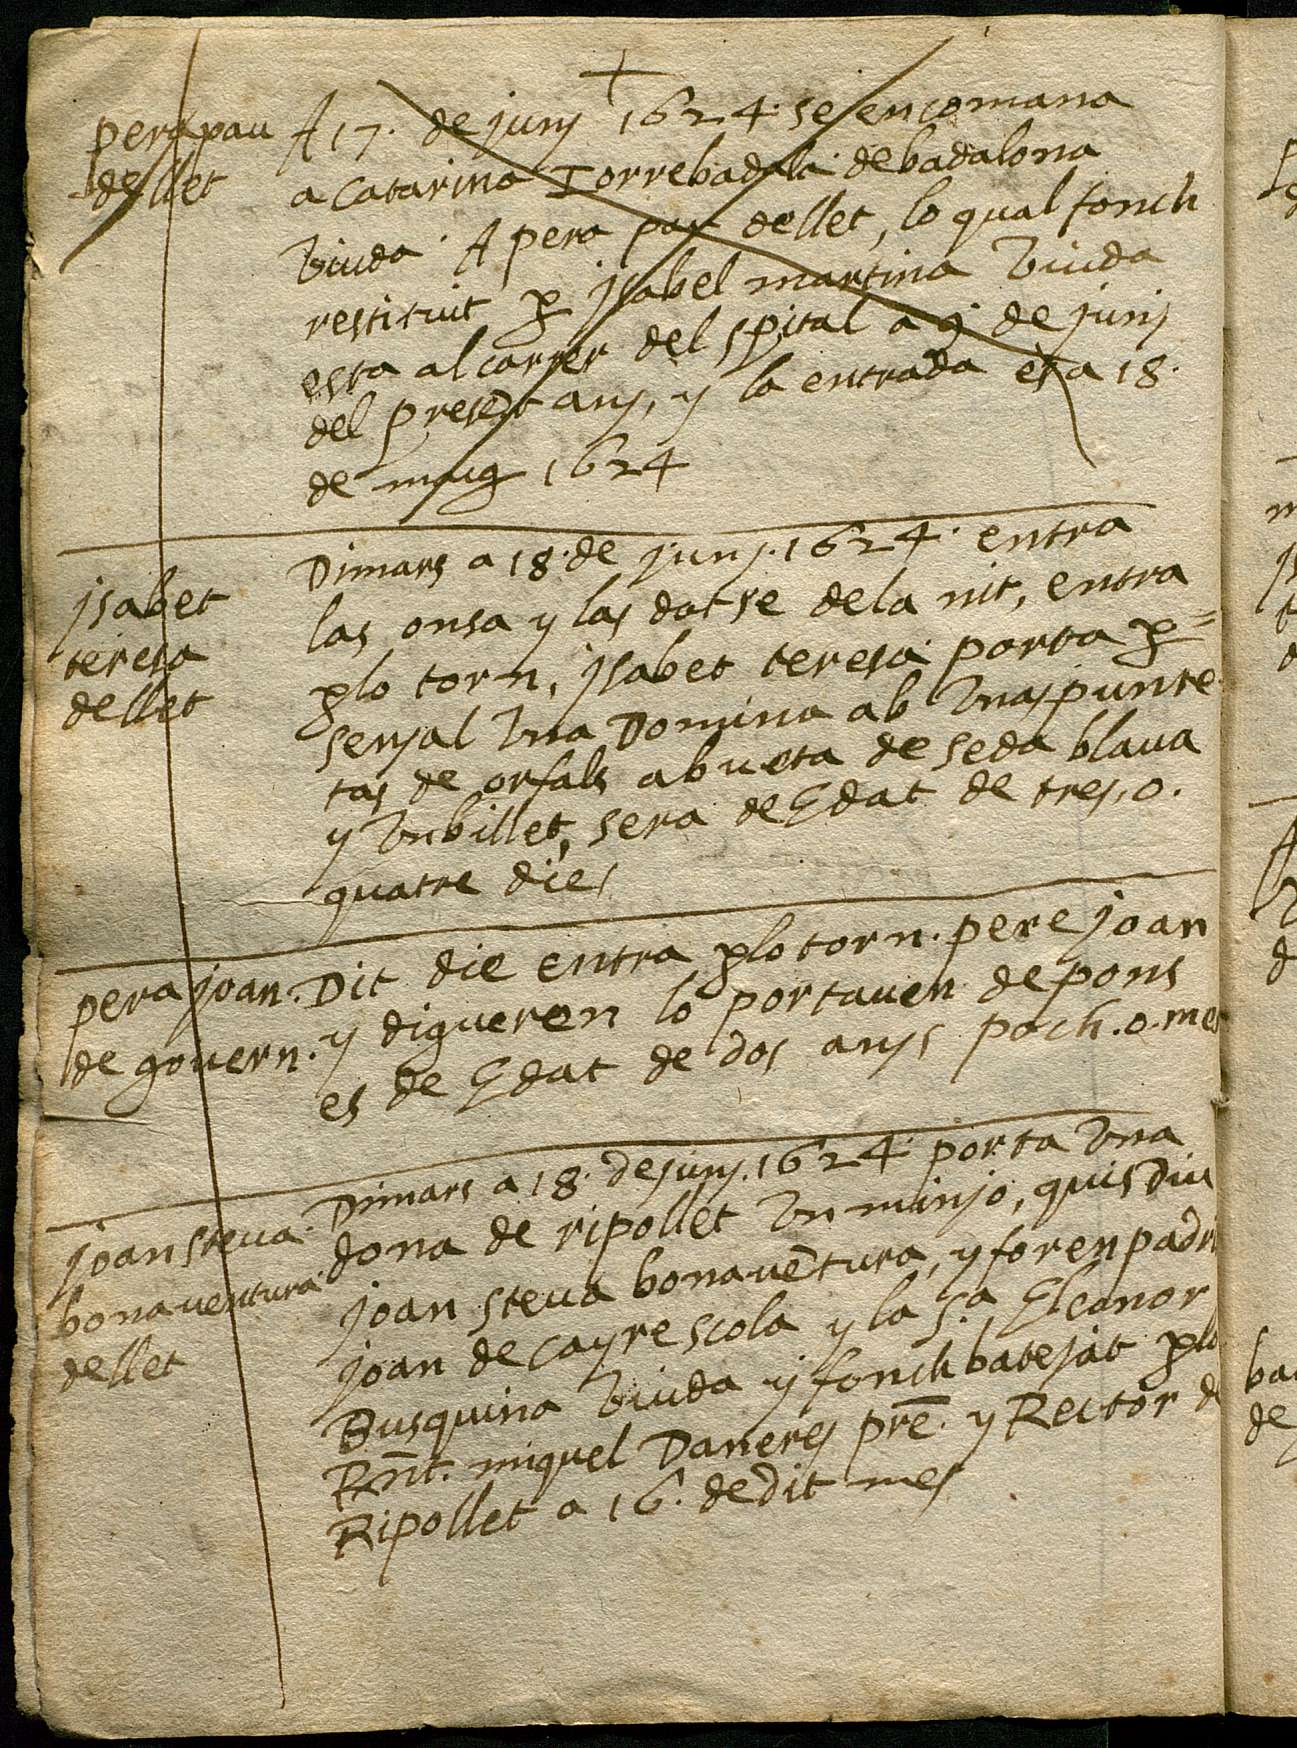 +
pera pau
de llet
A 17. de juny 1624. se encomana
a Catarina Torrebadala de badalona
Viuda. A pera pau de llet, lo qual fonch
restituit p jsabel martina Viuda
esta al carrer del spital a 9 de juny
del present any, y la entrada es a 18.
de maig 1624
jsabet
teresa
de llet
Dimars a 18. de juny. 1624. entra
las onsa y las dotse de la nit, entra
plo torn, jsabet teresa porta p=
senyal Vna Domina ab Vnas punte
tas de orfals ab veta de seda blaua
y Vn billet, sera de Edat de tres, o.
quatre dies
pera joan.
de govern.
Dit die entra plo torn. pere joan
y digueren lo portauen de pons
es de Edat de dos anys poch. o. mes
joan steua.
bonaventura.
de llet
Dimars a 18. de juny. 1624 porta Vna
dona de ripollet Vn minjo, quis Diu
joan steua bonauētura, y foren padri
joan de cayrescola y la S.ª Eleanor
Busquina Viuda y fonch batejat plo
Rnt. miquel Daneres prē. y Rector de
Ripollet a 16. de dit mes